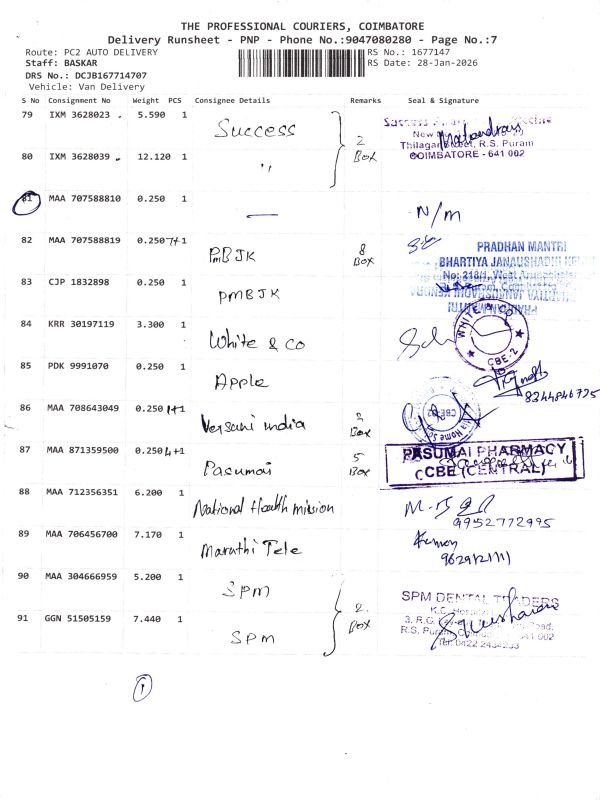 THE PROFESSIONAL COURIERS, COIMBATORE
Delivery Runsheet - PNP - Phone No.:9047080280 - Page No.:7
Route: PC2 AUTO DELIVERY
RS No.: 1677147
Staff: BASKAR
RS Date: 28-Jan-2026
DRS No.: DCJB167714707
Vehicle: Van Delivery
S No Consignment No Weight PCS Consignee Details Remarks Seal & Signature
79 IXM 3628023 5.590 1 Success
2 Box
Thilagar Street, R.S. Puram
COIMBATORE - 641 002
80 IXM 3628039 12.120 1 ,,
81 MAA 707588810 0.250 1 — N/M
82 MAA 707588819 0.250 7+1 PMBJK 8 Box
PRADHAN MANTRI
BHARTIYA JANAUSHADHI
83 CJP 1832898 0.250 1 PMBJK
84 KRR 30197119 3.300 1 White & co
WHITE & CO
CBE-2
85 PDK 9991070 0.250 1 Apple
8344846775
86 MAA 708643049 0.250 1+1 Versuni india 2 Box
87 MAA 871359500 0.250 4+1 Pasumai 5 Box
PASUMAI PHARMACY
CBE (CENTRAL)
88 MAA 712356351 6.200 1 National Health mission
9952772995
89 MAA 706456700 7.170 1 Marathi Tele
90 MAA 304666959 5.200 1 SPM
2 Box
SPM DENTAL TRADERS
91 GGN 51505159 7.440 1 SPM
1